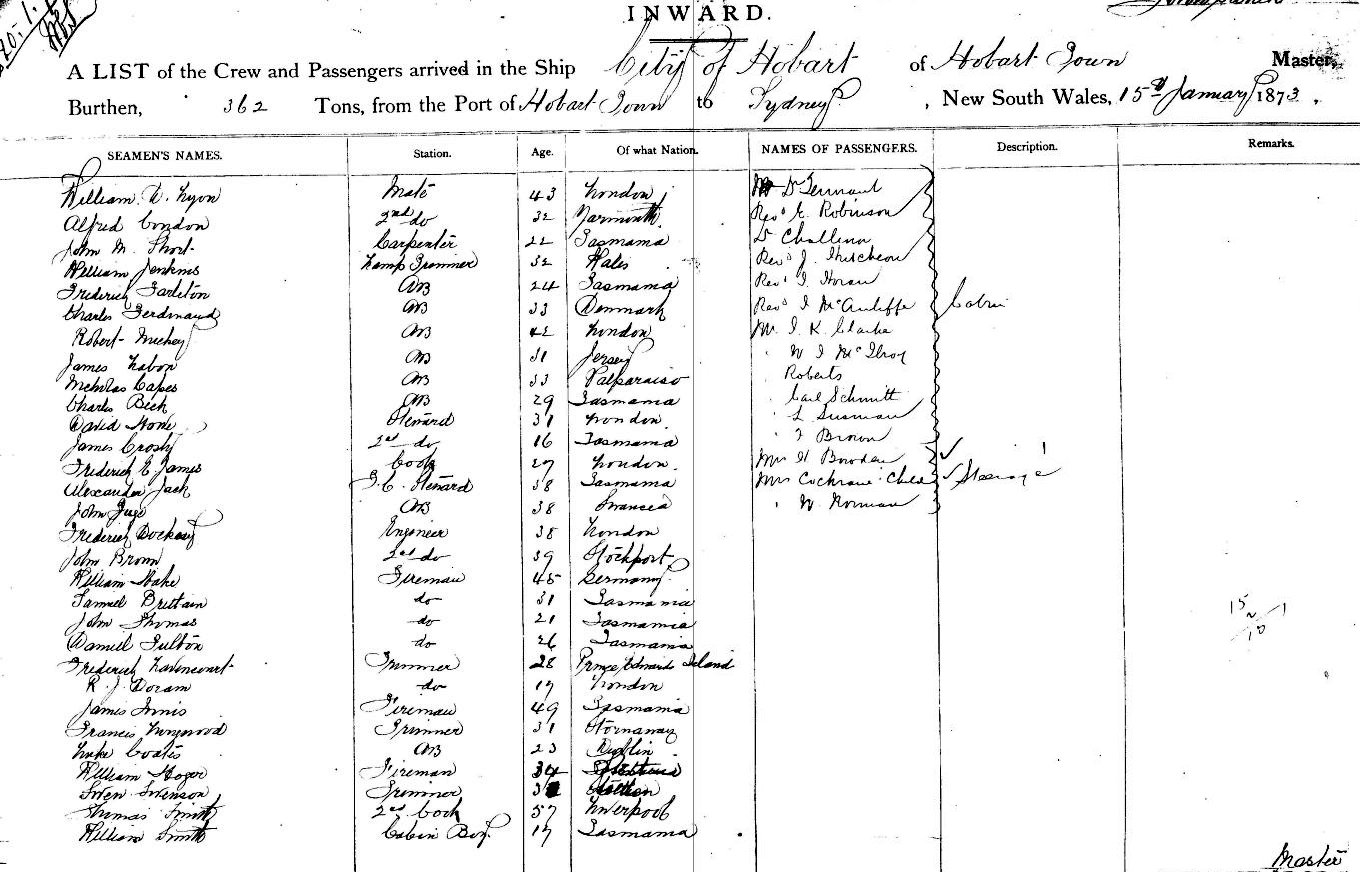 INWARD.
A LIST of the Crew and Passengers arrived in the Ship City of Hobart of Hobart Town Master,
Burthen, 362 Tons, from the Port of Hobart Town to Sydney, New South Wales, 15th January 1873,
SEAMEN'S NAMES. Station. Age. Of what Nation. NAMES OF PASSENGERS. Description. Remarks.
William D. Lyon Mate 43 London Dr Tennant
Alfred Condon 2nd do 32 Yarmouth Revd E. Robinson
John M. Short Carpenter 22 Tasmania Dr
William Jenkins Lamp Trimmer 32 Wales Revd J. Hutcheon
Frederick Tarleton AB 24 Tasmania Revd Horan
Charles Ferdinand AB 33 Denmark Revd McAuliffe Cabin
Robert AB 42 London Mr K Clarke
James AB 31 Jersey " W McIlroy
Nicholas Capes AB 33 Valparaiso Roberts
Charles Beck AB 29 Tasmania Carl Schmitt
David Steward 31 London " L Susman
James Crosby 2nd do 16 Tasmania " Brown
Frederick C. James Cook 27 London Mrs H Bowden
Alexander Jack Steward 38 Tasmania Mrs Cochrane Child Steerage
John AB 38 Swansea " W. Norman
Frederick Engineer 38 London
John Brown 2nd do 39 Stockport
William Fireman 45 Germany
Samuel Brittain do 31 Tasmania
John Thomas do 21 Tasmania
Daniel Fulton do 26 Tasmania
Frederick Trimmer 28 Prince Edwards Island
R. J. Doram do 17 London
James Innis Fireman 49 Tasmania
Francis Trimmer 31 Stornaway
Luke Coates AB 23 Dublin
William Fireman 34
Swen Swenson Trimmer
Thomas Smith 2nd Cook 57 Liverpool
William Smith Cabin Boy 17 Tasmania
Master